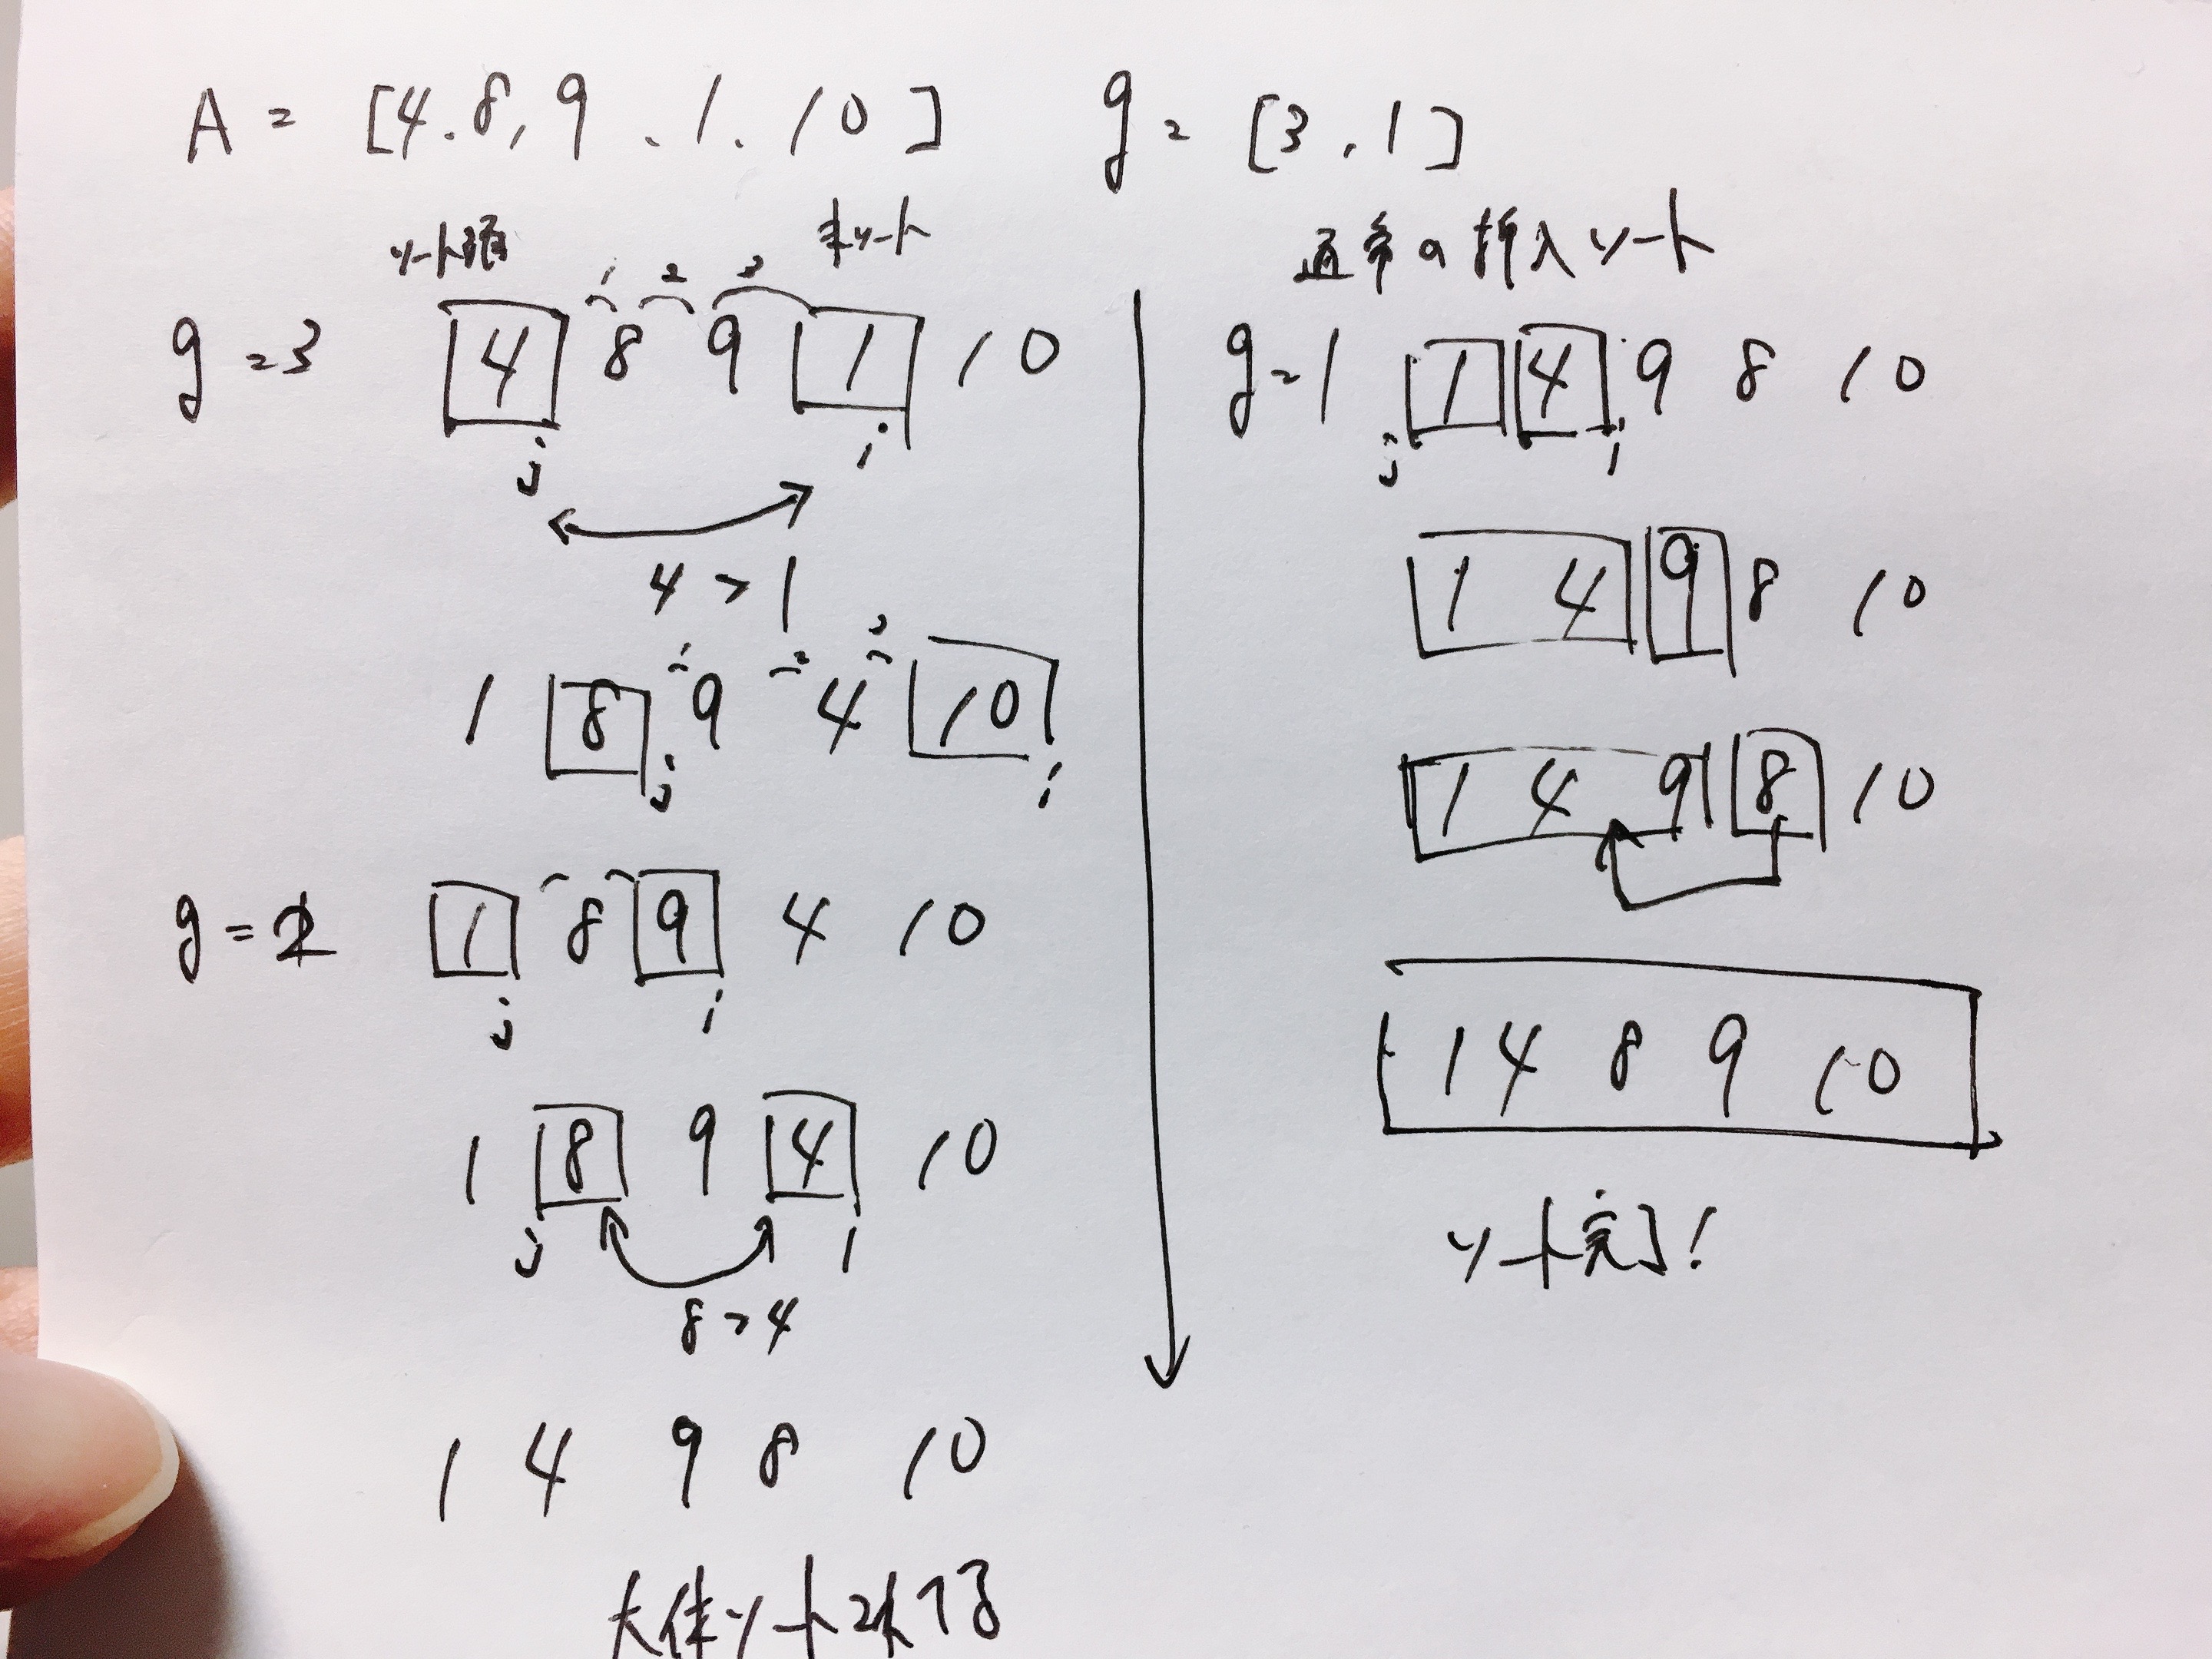 A = [4.8,9.1.10]
g = [3,1]
ソート済 未ソート
1 2 3
g=3 4 8 9 1 10
j i
4>1
1 2 3
1 8 9 4 10
j i
g=2 1 8 9 4 10
j i
1 8 9 4 10
j i
8>4
1 4 9 8 10
大体ソート出来てる
通常の挿入ソート
g=1 1 4 9 8 10
j i
1 4 9 8 10
1 4 9 8 10
1 4 8 9 10
ソート完了!